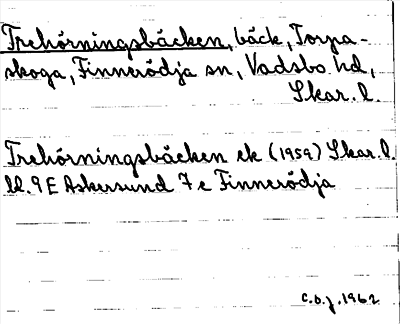 Trehörningsbäcken, bäck, Torpa-
skoga, Finnerödja sn, Vadsbo hd,
Skar. l.
Trehörningsbäcken ek (1959) Skar. l.
bl. 9 E Askersund 7 e Finnerödja
C.O.J. 1962